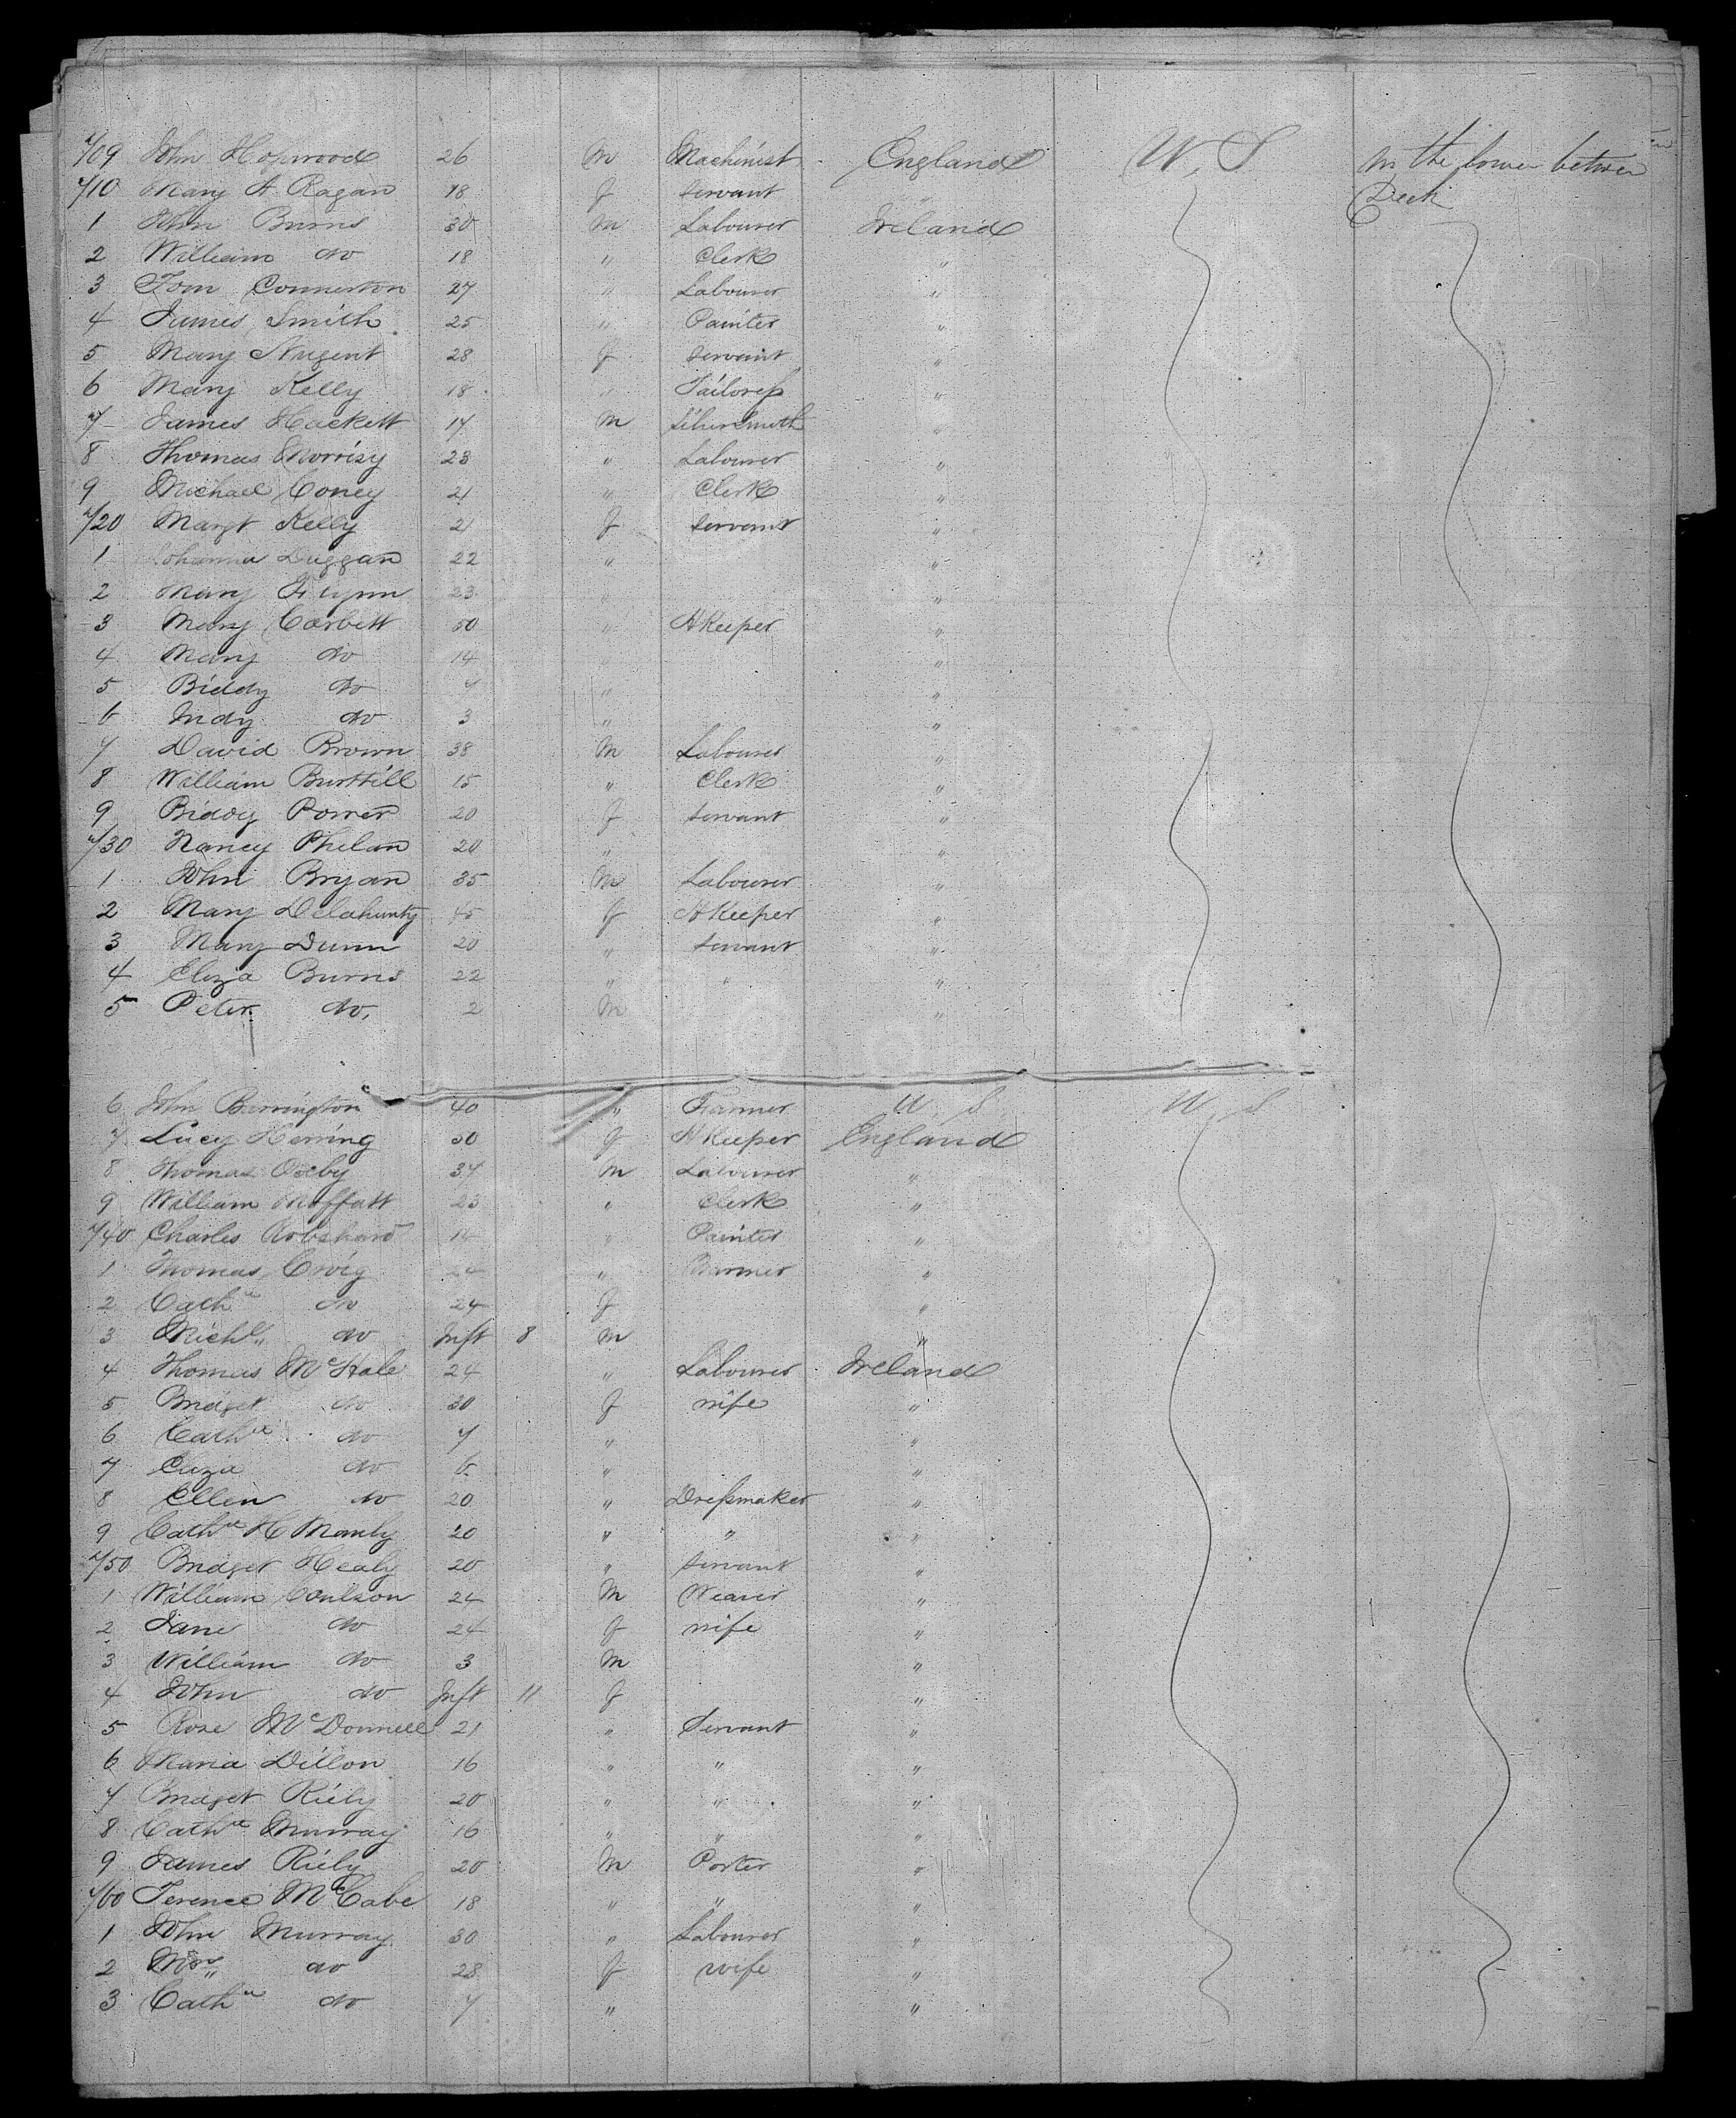 709 John Hopwood 26 m Machinist England U. S. In the lower between
710 Mary A Ragan 18 f Servant " Deck
1 John Burns 30 m Labourer Ireland
2 William do 18 " Clerk "
3 Tom Connerton 27 " Labourer "
4 James Smith 25 " Painter "
5 Mary Nugent 28 f Servant "
6 Mary Kelly 18 " Tailoress "
7 James Hackett 14 m Silversmith "
8 Thomas Morrisy 23 " Labourer "
9 Michael Coney 21 " Clerk "
720 Margt Kelly 21 f Servant "
1 Johanna Duggan 22 " "
2 Mary Flynn 23 " "
3 Mary Corbett 50 " HKeeper "
4 Mary do 14 " "
5 Biddy do 7 " "
6 Indy do 3 " "
7 David Brown 38 m Labourer "
8 William Burttill 15 " Clerk "
9 Biddy Power 20 f Servant "
730 Nancy Phelan 20 " "
1 John Bryan 35 m Labourer "
2 Mary Delahunty 45 f HKeeper "
3 Mary Dunn 20 " Servant "
4 Eliza Burns 22 " " "
5 Peter do. 2 m "
6 John Barrington 40 " Farmer U. S. U. S.
7 Lucy Herring 50 f HKeeper England
8 Thomas Oxby 37 m Labourer "
9 William Moffatt 23 " Clerk "
740 Charles 14 " Painter "
1 Thomas Croig 24 " Farmer "
2 Cathe do 24 f "
3 Michl do Inft 8 m "
4 Thomas McHale 24 " Labourer Ireland
5 Bridget do 30 f wife "
6 Cathe do 7 " "
7 Eliza do 6 " "
8 Ellen do 20 " Dressmaker "
9 Cathe H Manly 20 " " "
750 Bridget Healy 20 " Servant "
1 William Coulson 24 m Weaver "
2 Jane do 24 f wife "
3 William do 3 m "
4 John do Inft 11 f "
5 Rose McDonnell 21 " Servant "
6 Maria Dillon 16 " " "
7 Bridget Riely 20 " " "
8 Cathe Murray 16 " " "
9 James Riely 20 m Porter "
760 Terence McCabe 18 " " "
1 John Murray 30 " Labourer "
2 Mrs do 28 f wife "
3 Cathe do 7 " "